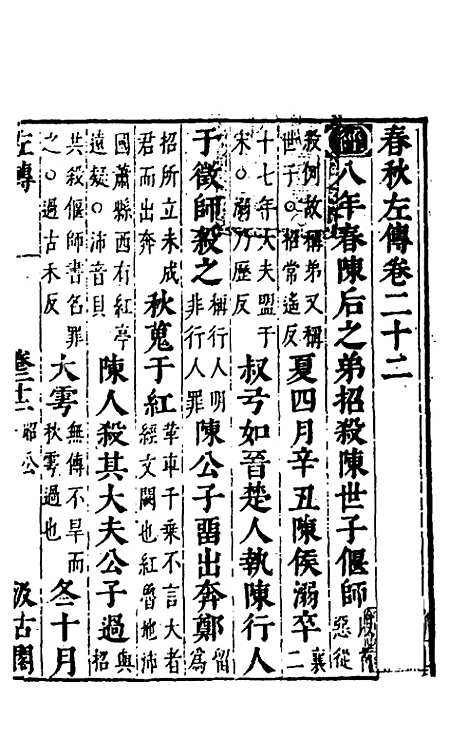 春秋左傳卷二十二
經八年春陳后之弟招殺陳世子偃師惡從
殺例故稱弟又稱世子○招常遙反夏四月辛丑陳侯溺卒襄二
十七年大夫盟于宋○溺乃歷反叔弓如晉楚人執陳行人
于徵師殺之稱行人明非行人罪陳公子留出奔鄭留為
招所立未成君而出奔秋蒐于紅革車千乘不言大者經文闕也紅魯地沛
國蕭縣西有紅亭遠疑○沛音貝陳人殺其大夫公子過與招
共殺偃師書名罪之○過古禾反大雩無傳不旱而秋雩過也冬十月
左傳 一 卷二十二 昭公 汲古閣